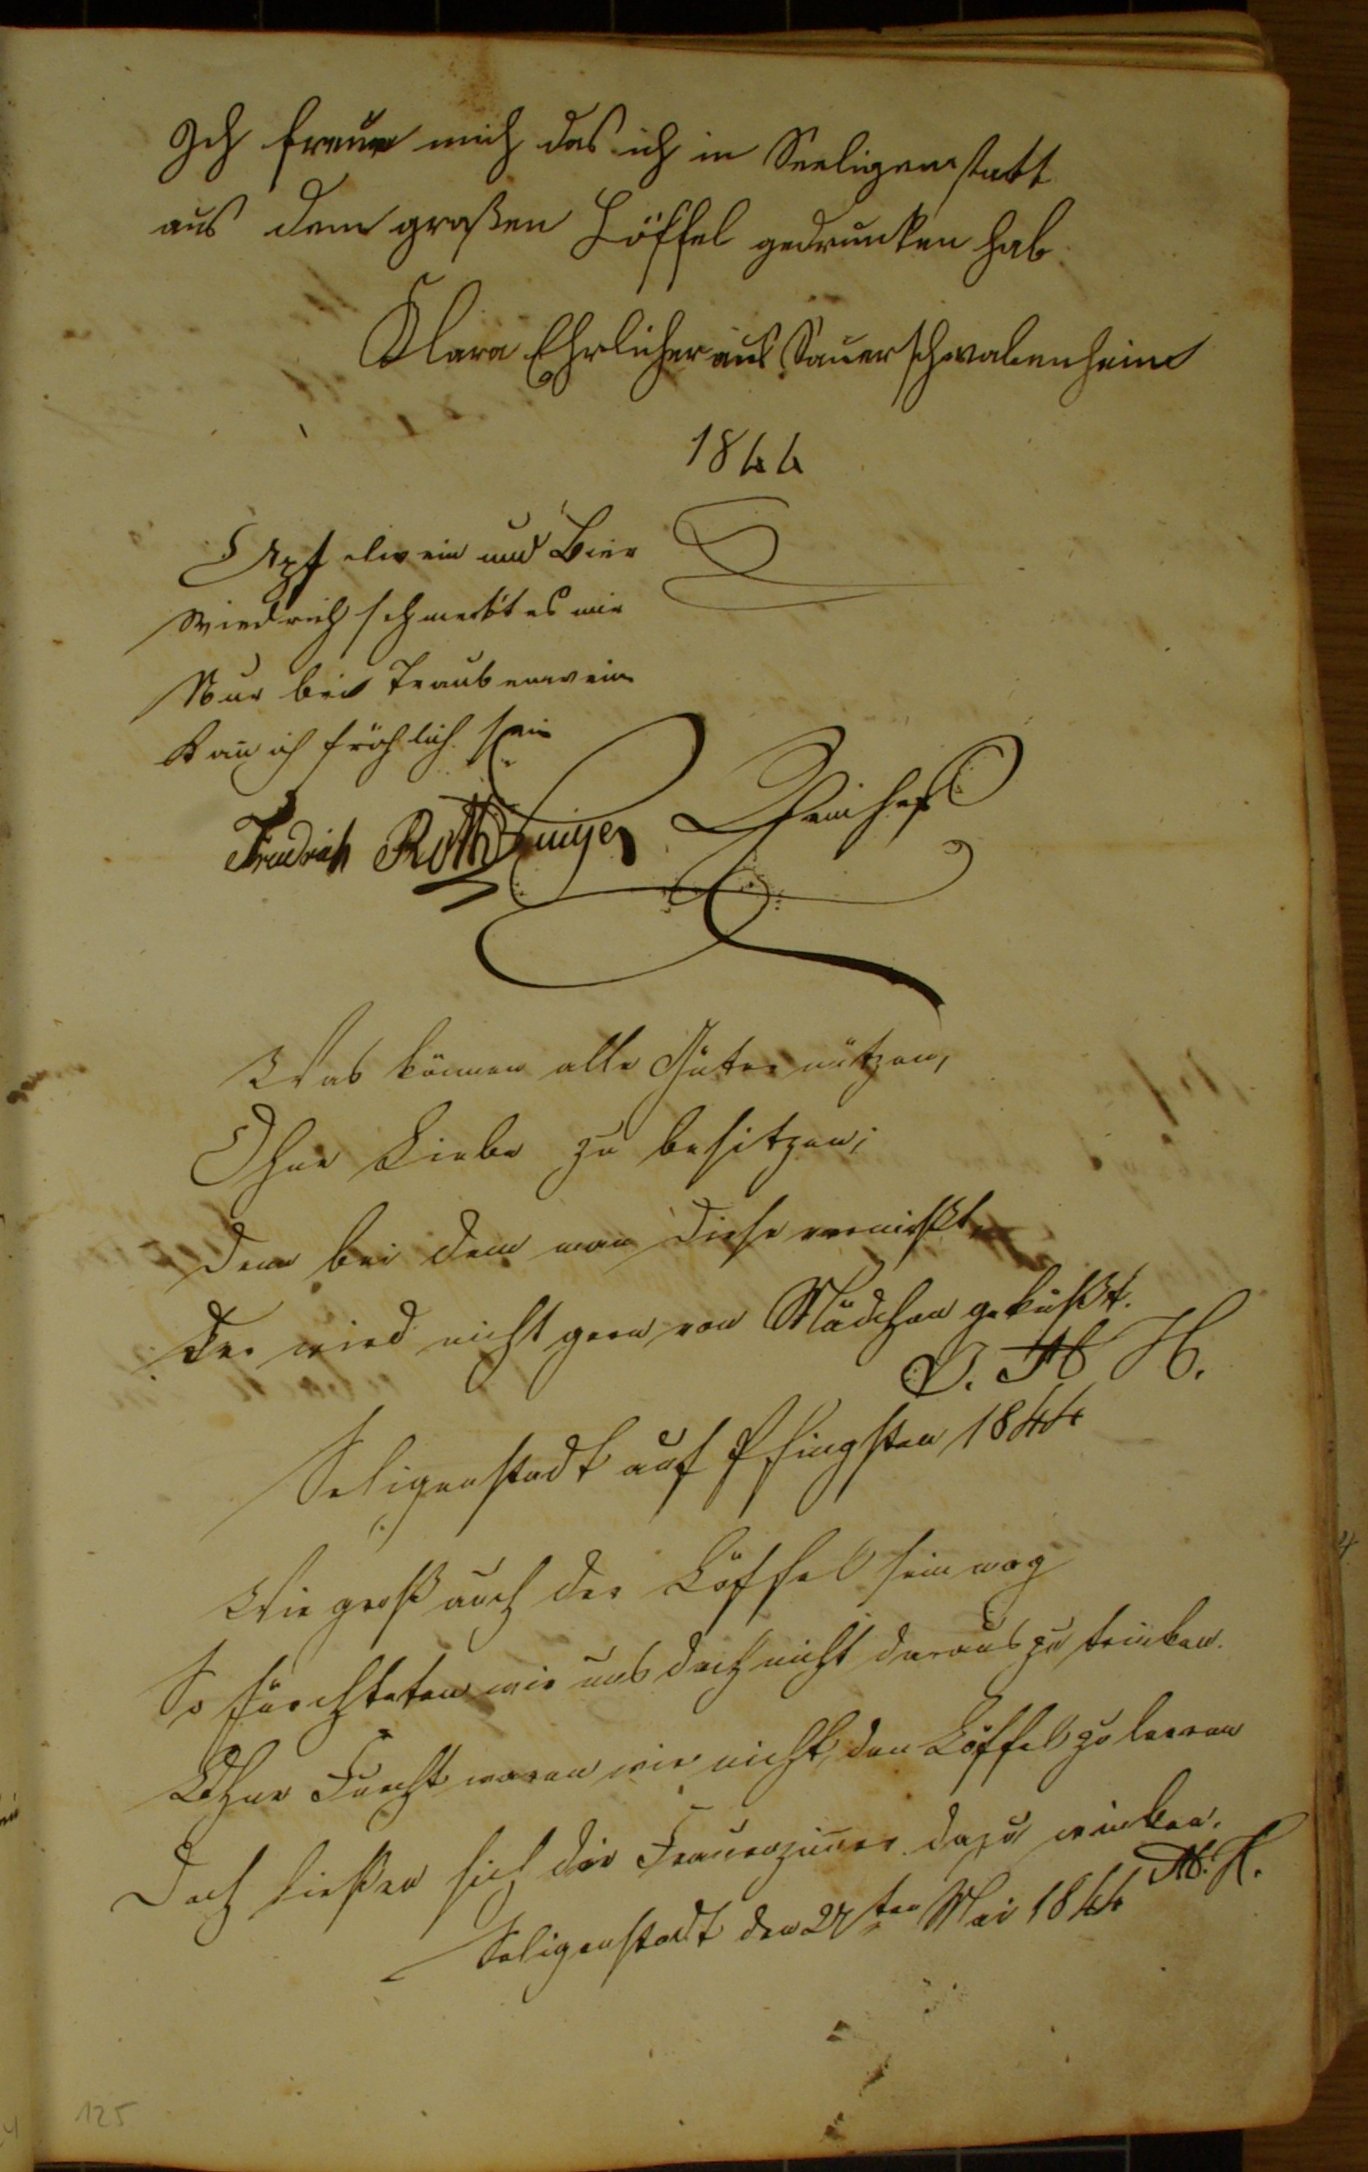 Ich freue mich das ich in Seeligenstatt
aus dem großen Löffel gedrunken hab
Klara Ehrlicher aus Sauerschwabenheim
1844
Apfelwein und Bier
Wiedrich schmeckt es mir
Nur bei Traubenwein
Kan̄ ich fröhlich sein
Friedrich Roth
Was können alle Güter nützen,
Ohne Liebe zu besitzen;
Denn bei dem man diese vermißt,
Der wird nicht gern von Mädchen geküßt.
H.
Seligenstadt auf Pfingsten 1844
Wie groß auch der Löffel sein mag
So fürchteten wir uns doch nicht daraus zu trinken.
Ohne Furcht waren wir nicht, den Löffel zu leeren
Doch ließen sich die Frauenzim̄er dazu winken.
Seligenstadt den 27ten Mai 1844
125